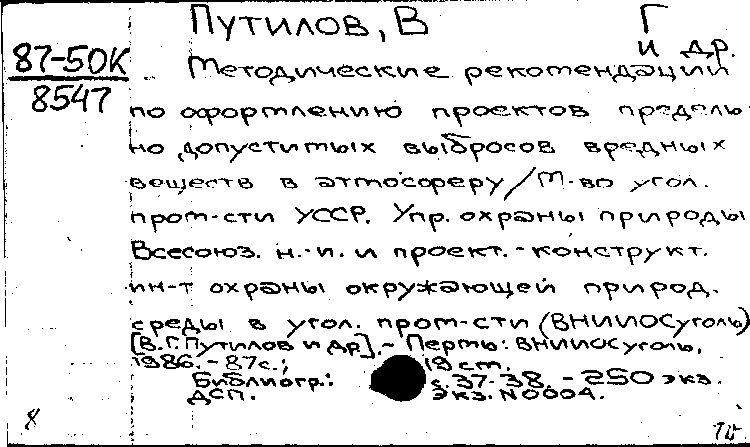 Путилов, В Г
и др.
87-50К
8547
Методические рекомендации
по оформлению проектов предель
но допустимых выбросов вредных
веществ в атмосферу/М-во угол.
пром-сти УССР. Упр. охраны природы
Всесоюз. н.-и. и проект.-конструкт.
ин-т охраны окружающей природ.
среды в угол. пром-сти (ВНИИОСуголь)
[В.Г.Путилов и др].- Пермь: ВНИИОСуголь,
1986.-87с.; 19 см.
Библиогр.: с.37-38.-250 экз.
ДСП. Экз.N0004.